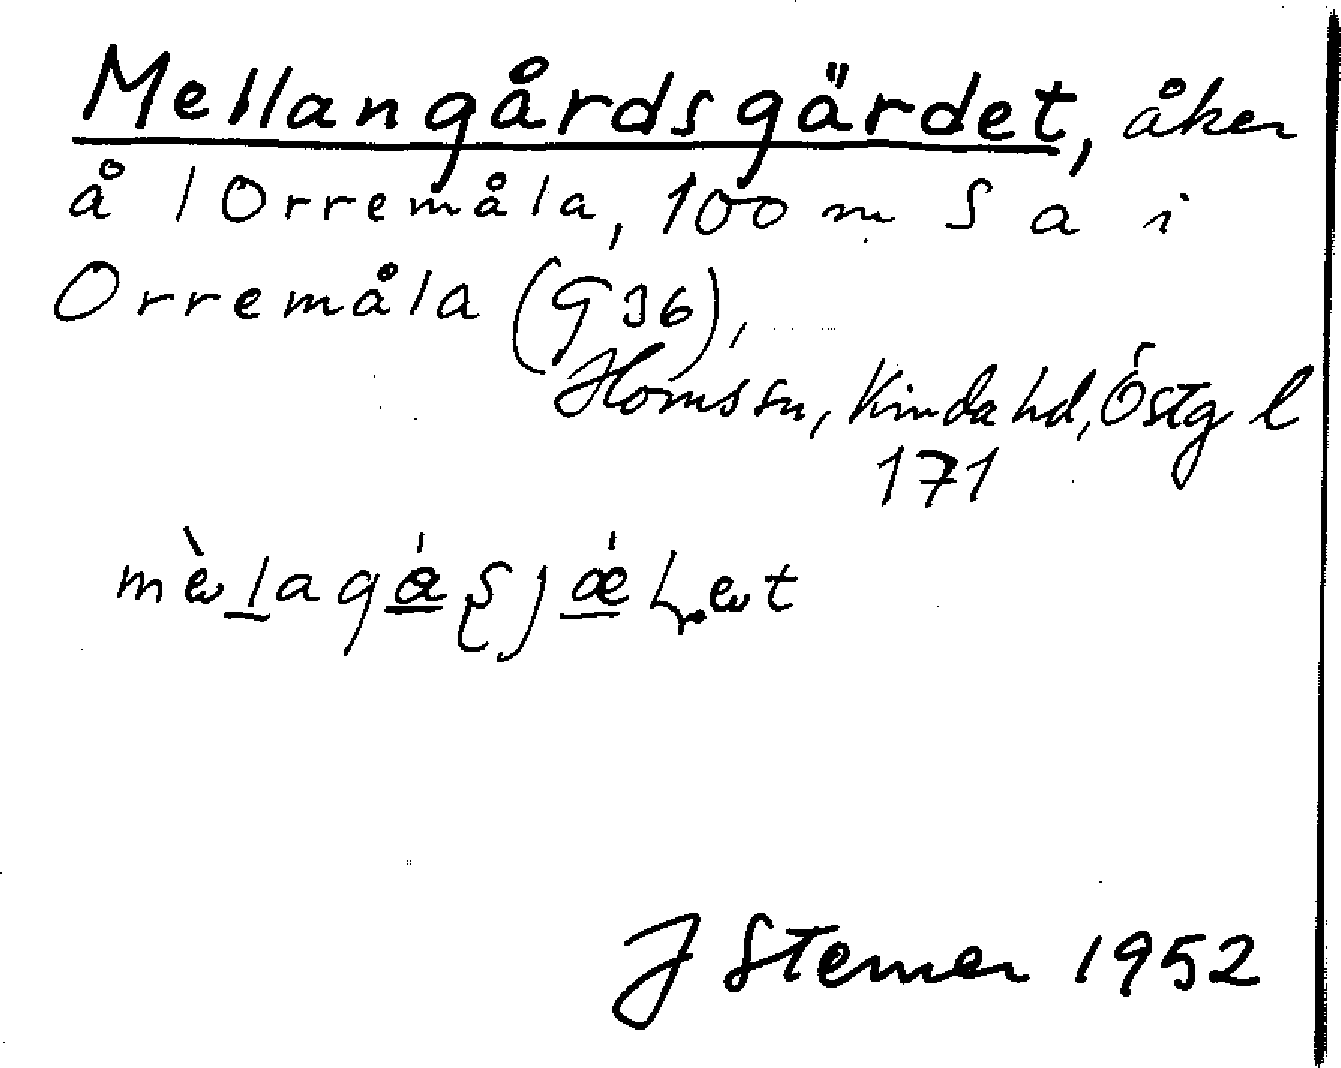 Mellangårdsgärdet, åker
å 1 Orremåla, 100 m S a i
Orremåla (G 36),
Horns sn, Kinda hd, Östg l
171
J Sterner 1952